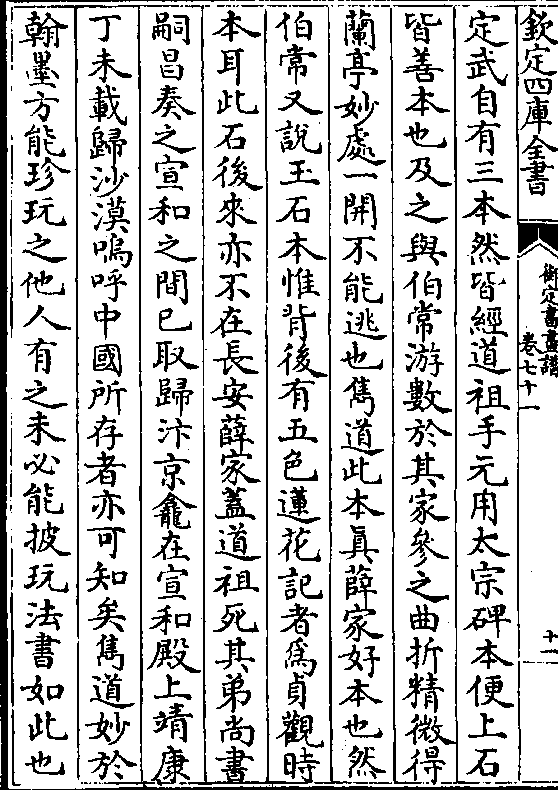 欽定四庫全書
御定書畫譜
卷七十一
十一
定武自有三本然皆經道祖手元用太宗碑本便上石
皆善本也及之與伯常游數於其家參之曲折精微得
蘭亭妙處一開不能逃也雋道此本真薛家好本也然
伯常又說玉石本惟背後有五色蓮花記者為貞觀時
本耳此石後來亦不在長安薛家蓋道祖死其弟尚書
嗣昌奏之宣和之間已取歸汴京龕在宣和殿上靖康
丁未載歸沙漠嗚呼中國所存者亦可知矣雋道妙於
翰墨方能珍玩之他人有之未必能披玩法書如此也